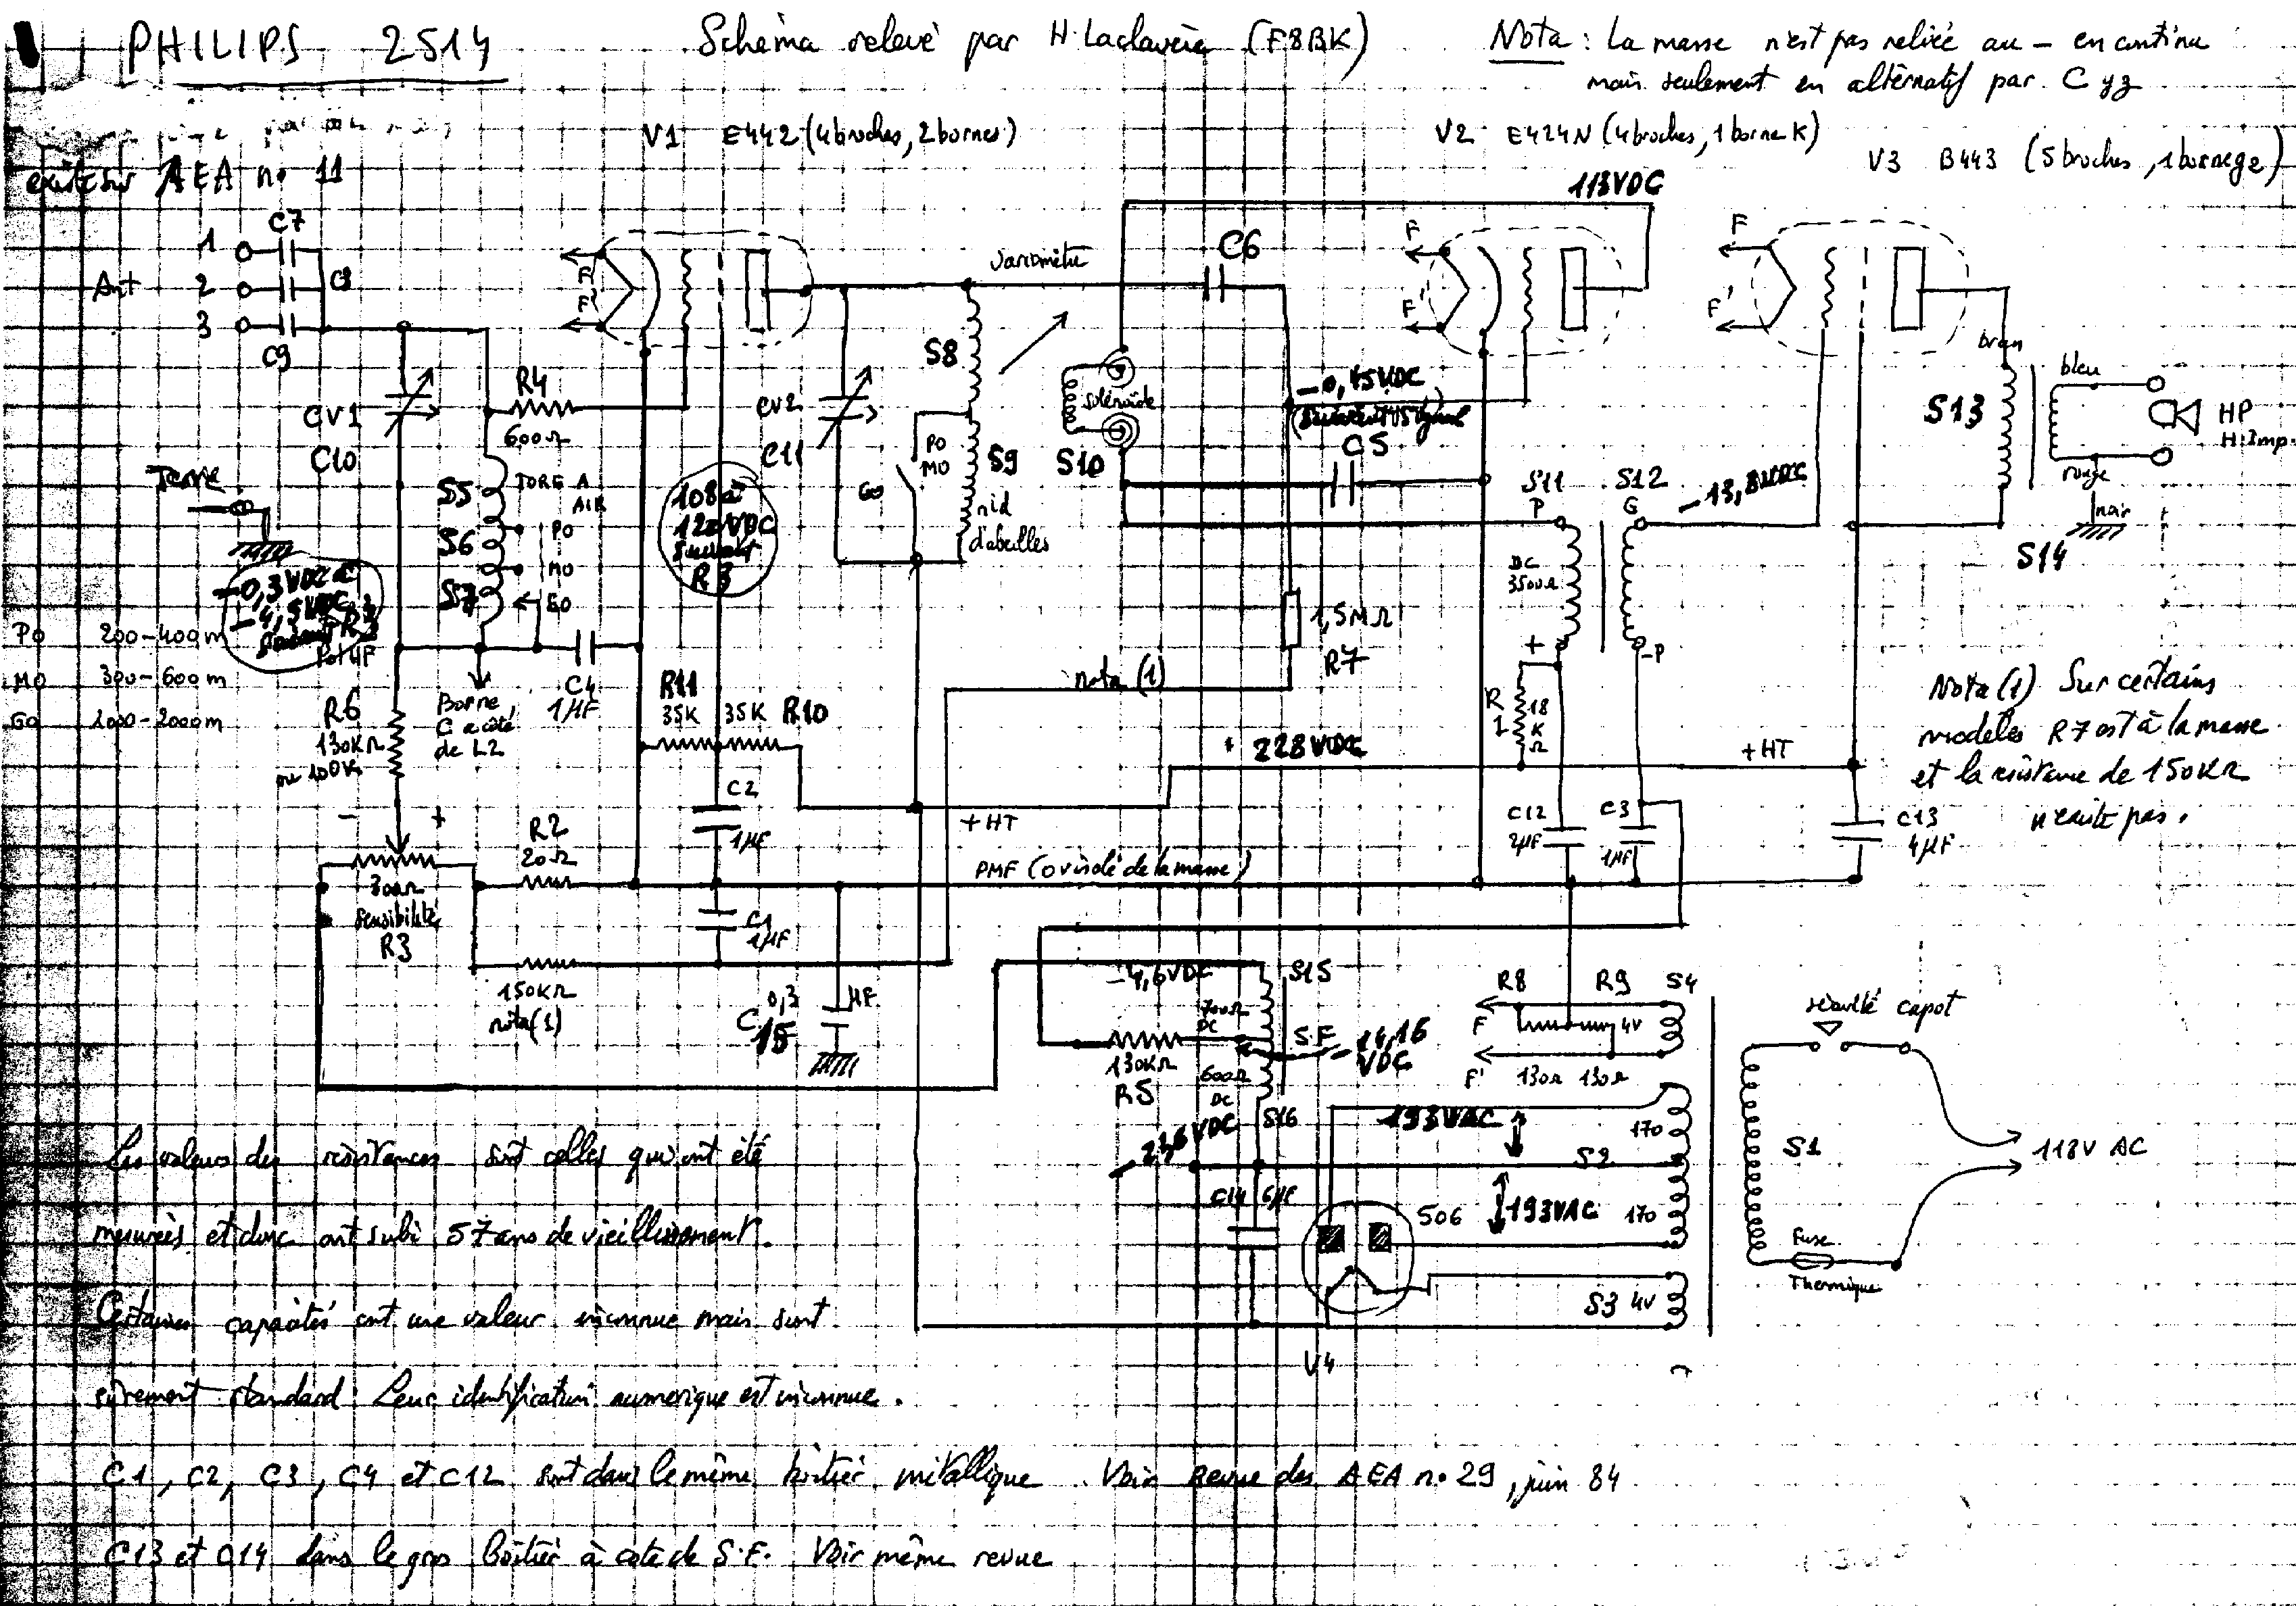 PHILIPS 2514
Schéma relevé par H. Laclavère (F8BK)
Nota : La masse n'est pas reliée au – en continu
mais seulement en alternatif par C
existe sur AEA no 11
V1 E442 (4 broches, 2 bornes)
V2 E424N (4 broches, 1 borne K)
V3 B443 (5 broches, 1 borne g2)
118VDC
C7
1
Ant 2 C8
3
C9
F
F'
variomètre
C6
F
F'
F
F'
S8
R4
600Ω
CV1
C10
CV2
C11
PO
MO
GO
S9
nid
d'abeilles
solénoïde
S10
–0,45VDC
C5
brun
S13
bleu
HP
H.Imp.
rouge
noir
S14
Terre
S5
TORE A
AIR
S6
S7
PO
MO
GO
108 à
120VDC
suivant
R3
–0,3VDC à
–4,5VDC
suivant R3
Pot HF
S11
P
S12
G
–13,8VDC
DC
3500Ω
+
-P
PO 200-400m
MO 300-600m
GO 1000-2000m
R6
130KΩ
ou 100K
Borne
C à côté
de L2
C4
1µF
R11
35K
35K R10
nota (1)
1,5MΩ
R7
R
1
18
K
Ω
+ 228VDC
+HT
Nota (1) Sur certains
modèles R7 est à la masse
et la résistance de 150KΩ
n'existe pas.
C2
1µF
+HT
C12
2µF
C3
1µF
C13
4µF
– +
R2
20Ω
300Ω
sensibilité
R3
PMF (0 isolé de la masse)
C1
1µF
150KΩ
nota (1)
0,3 µF
C15
–4,6VDC
S15
700Ω
DC
S.F
–14,16
VDC
130KΩ
R5
600Ω
DC
S16
R8 R9 S4
F
4V
F'
130Ω 130Ω
sécurité capot
193VAC
170
S2
193VAC
170
S1
118V AC
C14 6µF
506
S3 4V
V4
Fuse
Thermique
Les valeurs des résistances sont celles qui ont été
mesurées et donc ont subi 57 ans de vieillissement.
Certaines capacités ont une valeur inconnue mais sont
sûrement standard. Leur identification numérique est inconnue.
C1, C2, C3, C4 et C12 sont dans le même boîtier métallique. Voir Revue des AEA no 29, juin 84
C13 et C14 dans le gros boîtier à côté de S.F. Voir même revue